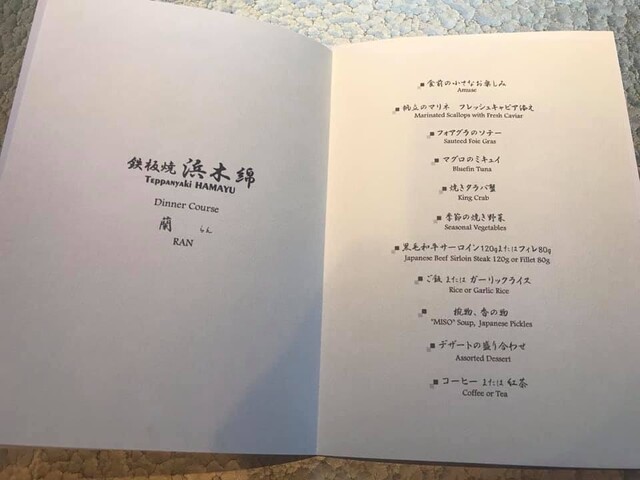 鉄板焼 浜木綿
Teppanyaki HAMAYU
Dinner Course
蘭 らん
RAN
食前の小さなお楽しみ
Amuse
帆立のマリネ フレッシュキャビア添え
Marinated Scallops with Fresh Caviar
フォアグラのソテー
Sauteed Foie Gras
マグロのミキュイ
Bluefin Tuna
焼きタラバ蟹
King Crab
季節の焼き野菜
Seasonal Vegetables
黒毛和牛サーロイン120gまたはフィレ80g
Japanese Beef Sirloin Steak 120g or Fillet 80g
ご飯 または ガーリックライス
Rice or Garlic Rice
椀物、香の物
"MISO" Soup, Japanese Pickles
デザートの盛り合わせ
Assorted Dessert
コーヒー または 紅茶
Coffee or Tea